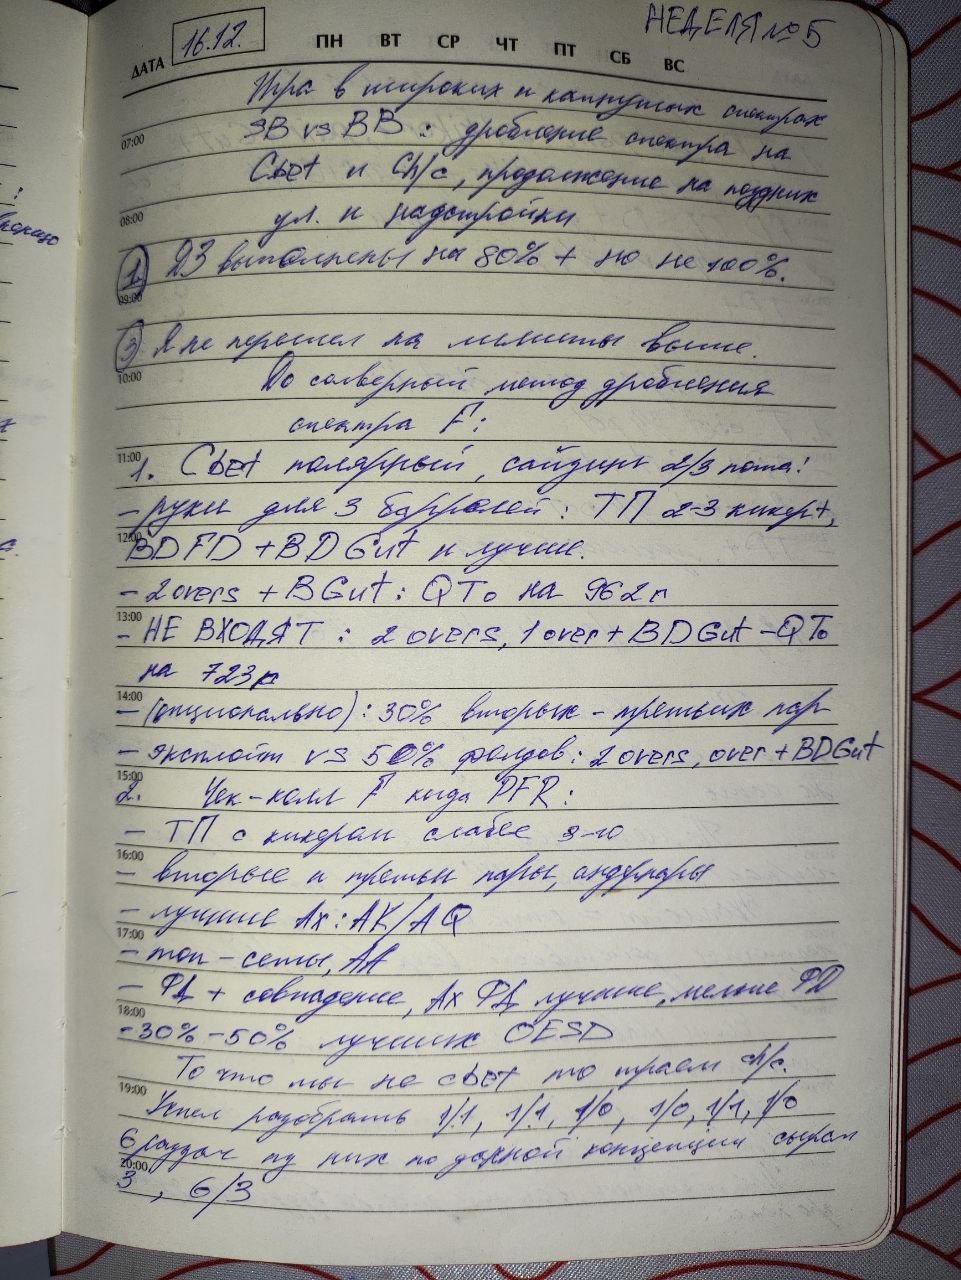 НЕДЕЛЯ №5
ДАТА 16.12. ПН ВТ СР ЧТ ПТ СБ ВС
Игра в широких и спектрах
07:00 SB vs BB: дробление спектра на
Cbet и Ch/c, продолжение на поздних
08:00 ул. и надстройки
1. ДЗ выполнены на 80% + но не 100%.
09:00
3 Я не перешел на лимиты выше.
10:00 До солверный метод дробления
спектра F:
11:00 1. Cbet полярный, сайзинг 2/3 пота!
- руки для 3 баррелей: ТП 2-3 кикер+,
12:00 BDFD + BDGut и лучше.
- 2overs + BGut: QTo на 962r
13:00 - НЕ ВХОДЯТ: 2 overs, 1 over + BDGut - QTo
на 723r
14:00 - (опционально): 30% вторых - третьих пар
- эксплойт vs 50% фолдов: 2 overs, over + BDGut
15:00 2. Чек-колл F когда PFR:
- ТП с кикером слабее 3-го
16:00 - вторые и третьи пары, андерпары
- лучшие Ax: AK/AQ
17:00 - топ-сеты, AA
- ФД + совпадение, Ax ФД лучшие, мелкие ФД
18:00 - 30% - 50% лучших OESD
То что мы не cbet то играем ch/c.
19:00 Успел разобрать 1/1, 1/1, 1/0, 1/0, 1/1, 1/0
6 раздач из них по данной концепции сыграл
20:00 3, 6/3